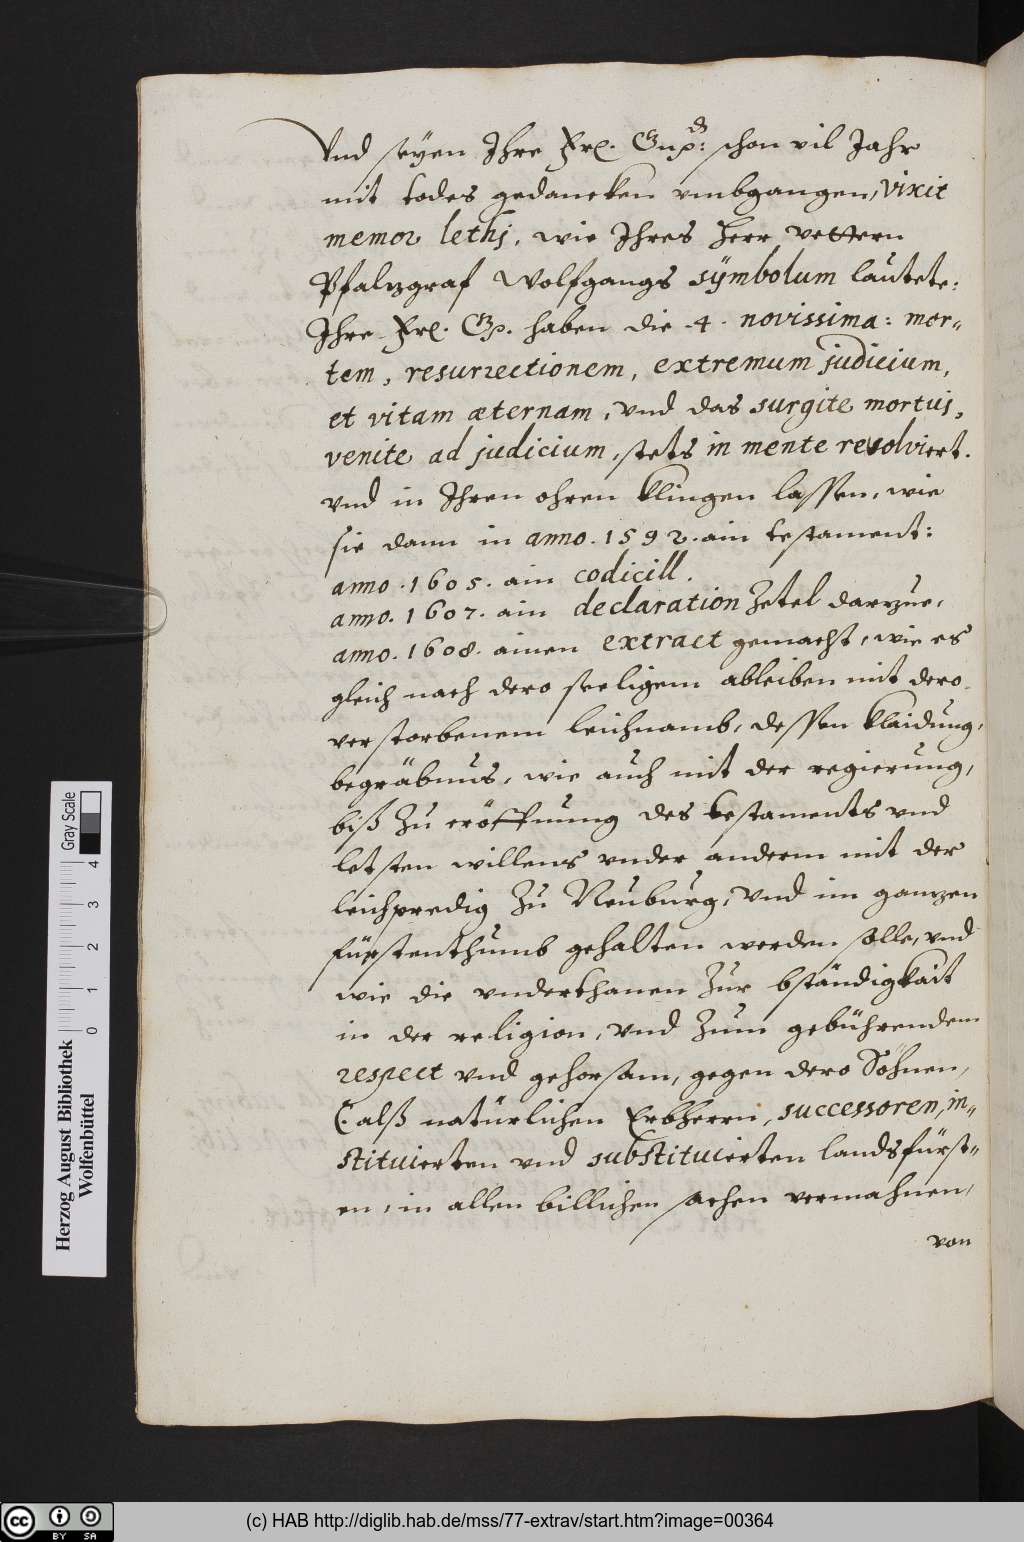 Vnd seyen Ihre Frl. Gnd: schon vil Jahr
mit todes gedancken vmbgangen, vixit
memor lethj, wie Ihres Herr vettern
Pfalzgraf Wolfgangs sÿmbolum lautete:
Ihre Frl. G. haben die 4. novissima: mor„
tem, resurrectionem, extremum judicium,
et vitam æternam, vnd das surgite mortui,
venite ad judicium, stets in mente resolviert.
vnd in Ihren ohren klingen lassen, wie
sie dann in anno. 1592. ain testament:
anno. 1605. ain codicill.
anno. 1607. ain declaration Zetel darzue,
anno. 1608. ainen extract gemacht, wie es
gleich nach dero seeligem ableiben mit dero
verstorbenem leichnamb, dessen klaidung,
begräbnus, wie auch mit der regierung,
biß Zu eröffnung des testaments vnd
letsten willens vnder anderm mit der
leichpredig Zu Neuburg, vnd im ganzen
fürstenthumb gehalten werden solle, vnd
wie die vnderthanen Zur bständigkait
in der religion, vnd Zum gebührendem
respect vnd gehorsam, gegen dero Söhnen,
(. alß natürlichen Erbherrn, successoren, in„
stituierten vnd substituierten landsfürst„
en, in allen billichen sachen vermahnen,
von
Herzog August Bibliothek
Wolfenbüttel
0 1 2 3 4
Gray Scale
cc BY SA
(c) HAB http://diglib.hab.de/mss/77-extrav/start.htm?image=00364